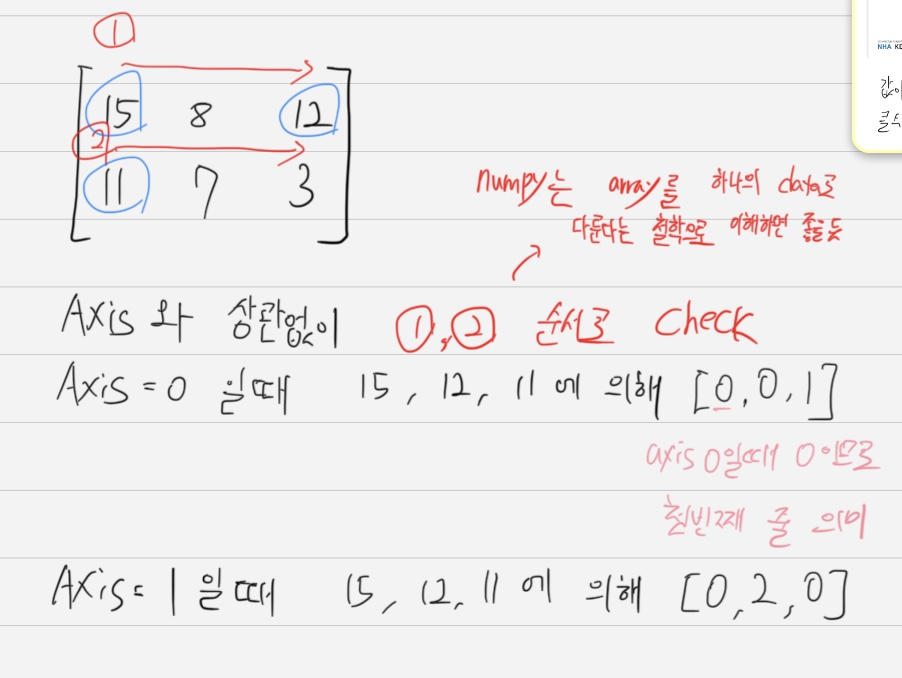 ①
15 8 12
②
11 7 3
NHA KD
값이
numpy는 array를 하나의 data로
다룬다는 철학으로 이해하면 좋을듯
Axis와 상관없이 ①,② 순서로 check
Axis=0 일때 15, 12, 11에 의해 [0,0,1]
axis 0일때 0이므로
첫번째 줄 의미
Axis=1일때 15, 12, 11에 의해 [0,2,0]